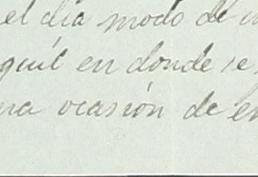 el día modo de
en donde se
ocasión de